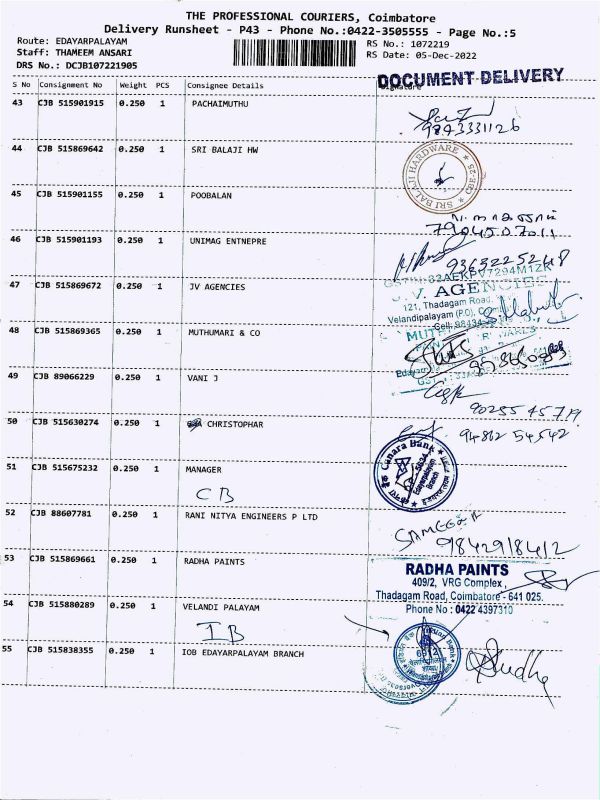 THE PROFESSIONAL COURIERS, Coimbatore
Delivery Runsheet - P43 - Phone No.:0422-3505555 - Page No.:5
Route: EDAYARPALAYAM
RS No.: 1072219
Staff: THAMEEM ANSARI
RS Date: 05-Dec-2022
DRS No.: DCJB107221905
DOCUMENT DELIVERY
S No Consignment No Weight PCS Consignee Details Signature
43 CJB 515901915 0.250 1 PACHAIMUTHU
9843331126
44 CJB 515869642 0.250 1 SRI BALAJI HW
SRI BALAJI HARDWARE * CBE-25 *
45 CJB 515901155 0.250 1 POOBALAN
7904507011
46 CJB 515901193 0.250 1 UNIMAG ENTNEPRE
9363225248
47 CJB 515869672 0.250 1 JV AGENCIES
J.V. AGENCIES
121, Thadagam Road,
Velandipalayam (P.O),
Cell:
48 CJB 515869365 0.250 1 MUTHUMARI & CO
49 CJB 89066229 0.250 1 VANI J
9025545719
50 CJB 515630274 0.250 1 CHRISTOPHAR
9486254542
51 CJB 515675232 0.250 1 MANAGER
CB
Canara Bank
Edayarpalayam
Branch
52 CJB 88607781 0.250 1 RANI NITYA ENGINEERS P LTD
SAMEEER
9842918412
53 CJB 515869661 0.250 1 RADHA PAINTS
RADHA PAINTS
409/2, VRG Complex,
Thadagam Road, Coimbatore - 641 025.
Phone No : 0422 4397310
54 CJB 515880289 0.250 1 VELANDI PALAYAM
IB
55 CJB 515838355 0.250 1 IOB EDAYARPALAYAM BRANCH
Sudha